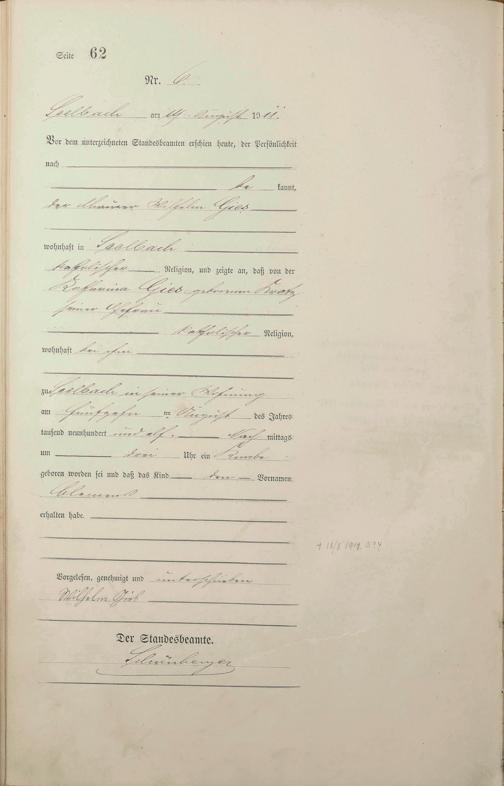 Seite 62
Nr. 6.
Seelbach am 19. August 1911.
Vor dem unterzeichneten Standesbeamten erschien heute, der Persönlichkeit
nach
be kannt,
der Maurer Wilhelm Gies
wohnhaft in Seelbach
katholischer Religion, und zeigte an, daß von der
Katharina Gies geborenen
seiner Ehefrau
katholischer Religion,
wohnhaft bei ihm
zu Seelbach in seiner Wohnung
am fünfzehn ten August des Jahres
tausend neunhundert und elf, Nach mittags
um drei Uhr ein Knabe
geboren worden sei und daß das Kind den Vornamen
Clemens
erhalten habe.
Vorgelesen, genehmigt und unterschrieben
Wilhelm Gies
Der Standesbeamte.